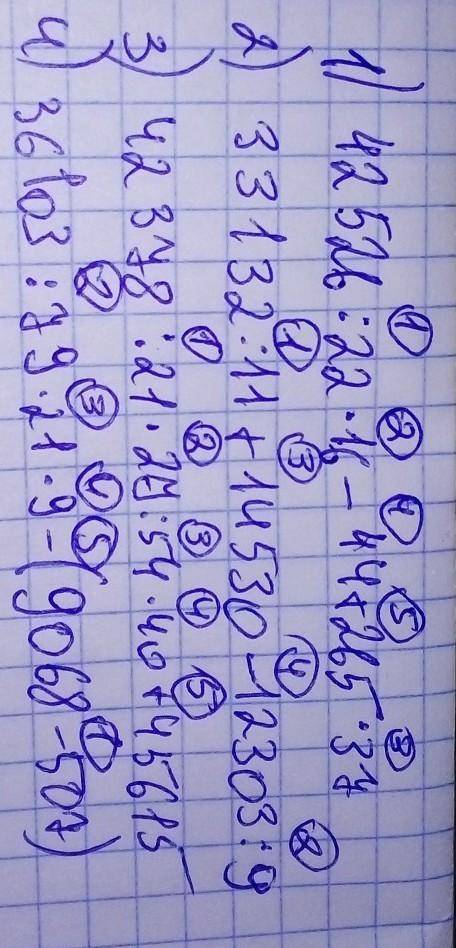 ① ② ④ ⑤ ③
1) 42526 : 22 · 16 − 44 + 265 · 37
① ③ ④ ②
2) 33132 : 11 + 14530 − 12303 : 9
① ② ③ ④ ⑤
3) 42378 : 21 · 27 : 54 · 40 + 45615
② ③ ④ ⑤ ①
4) 36103 : 79 · 21 · 9 − (9068 − 507)